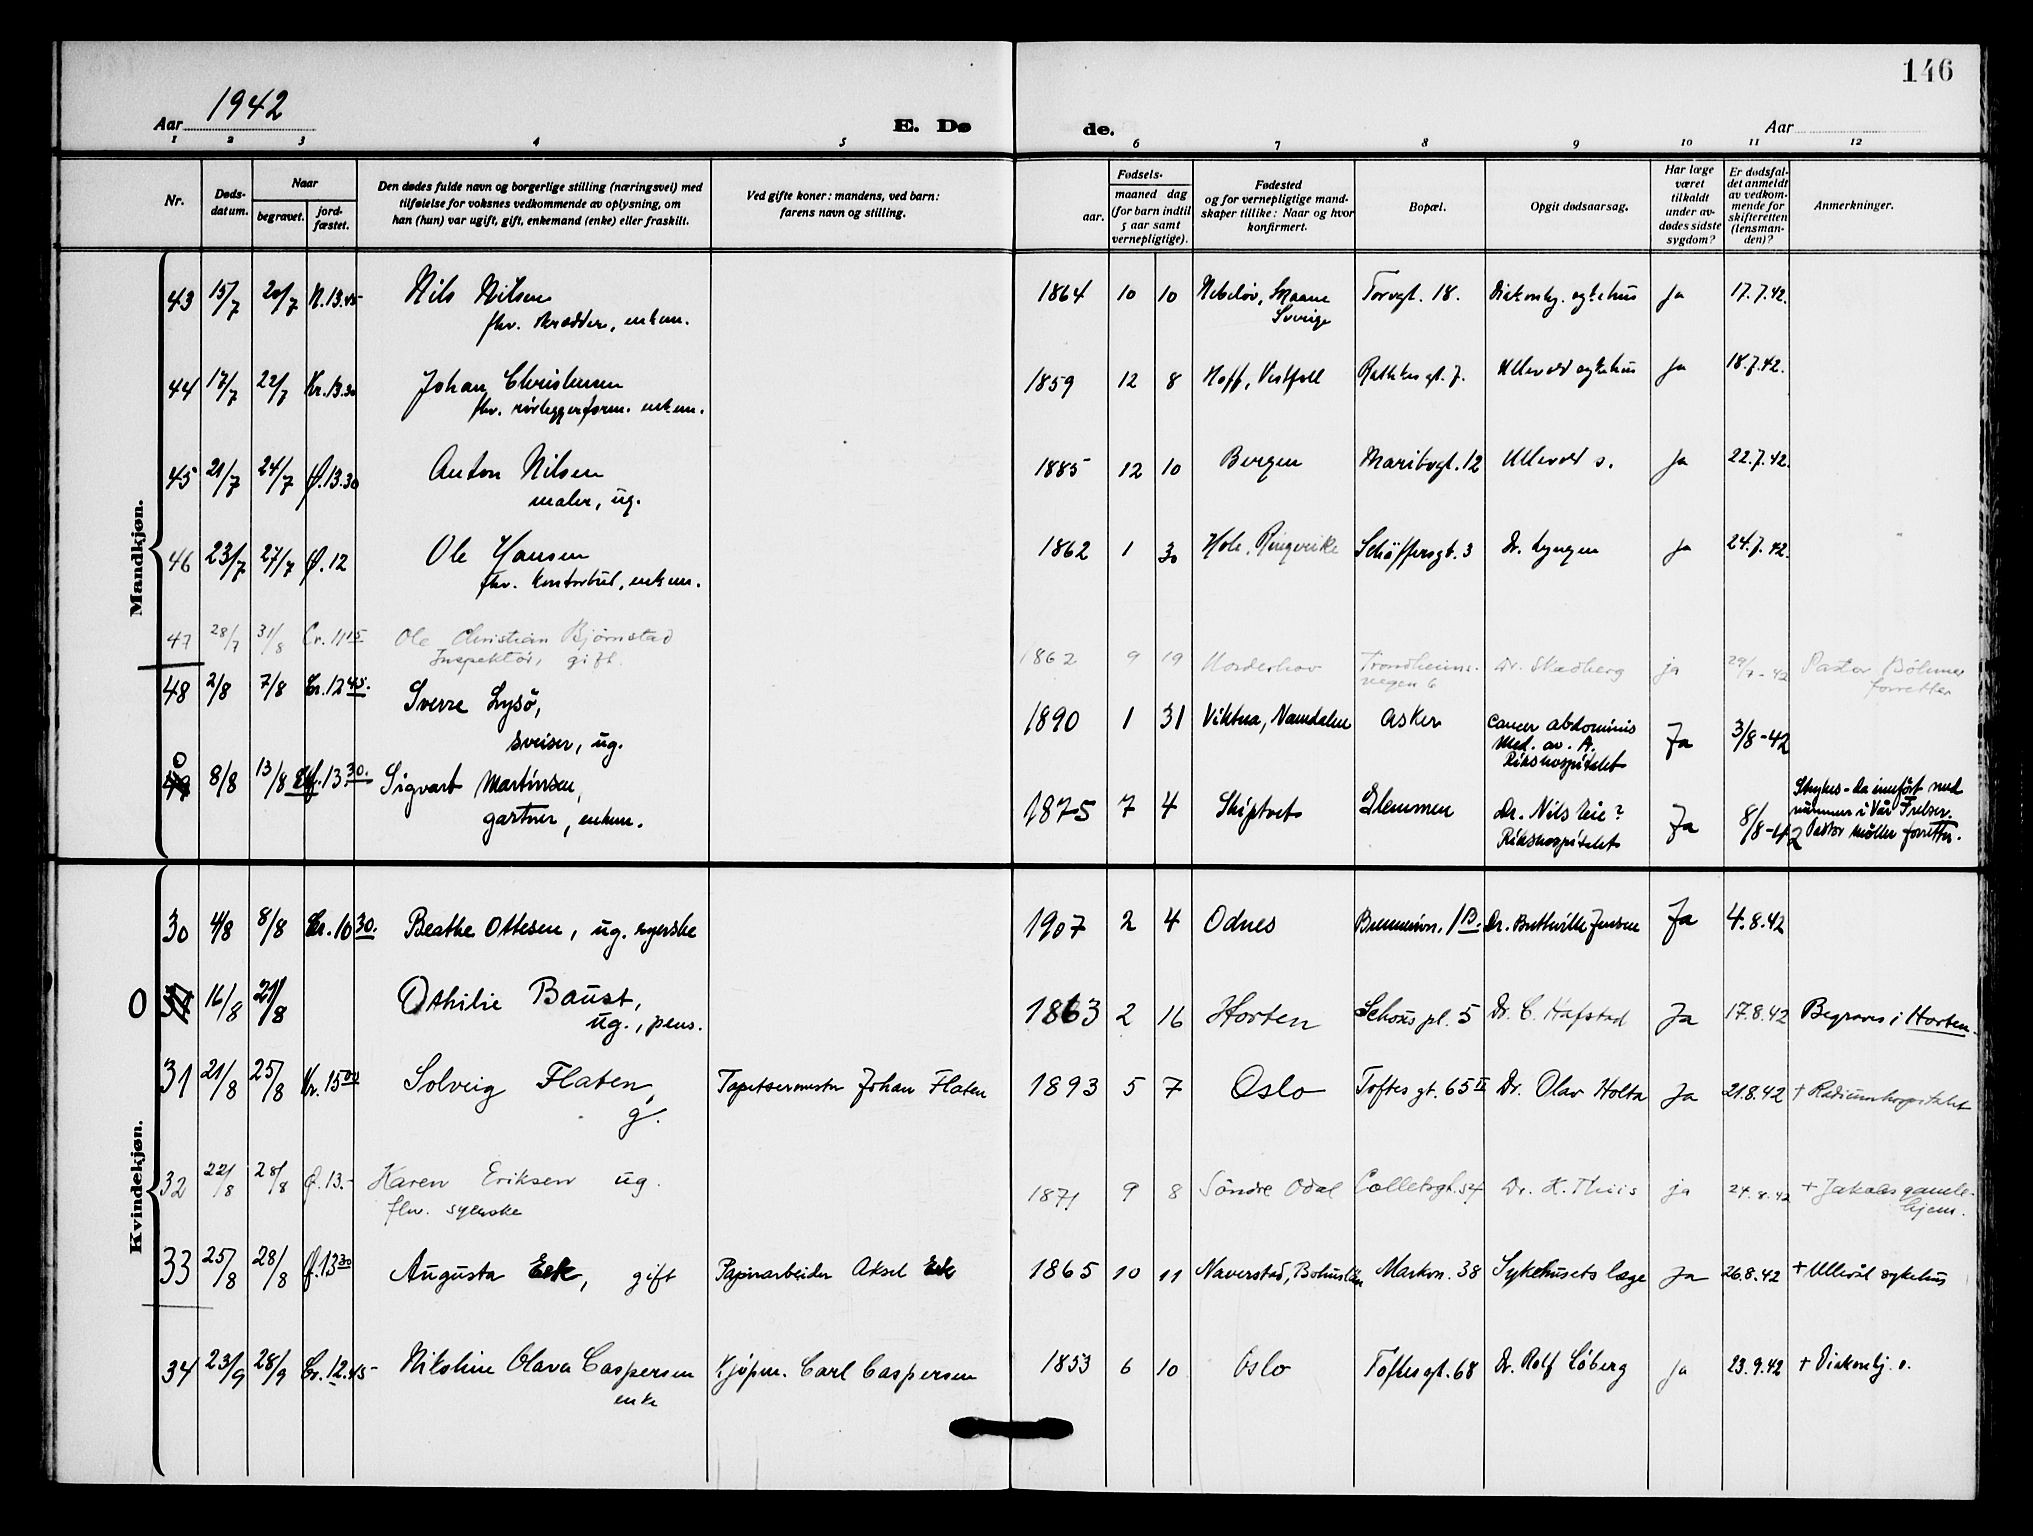 146
Aar 1942
E. Dø
de.
Aar
1 2 3 4 5 6 7 8 9 10 11 12
Nr.
Døds-
datum.
Naar
begravet.
jord-
fæstet.
Den dødes fulde navn og borgerlige stilling (næringsvei) med
tilføielse for voksnes vedkommende av oplysning, om
han (hun) var ugift, gift, enkemand (enke) eller fraskilt.
Ved gifte koner: mandens, ved barn:
farens navn og stilling.
Fødsels-
aar.
maaned dag
(for barn indtil
5 aar samt
vernepligtige).
Fødested
og for vernepligtige mand-
skaper tillike: Naar og hvor
konfirmert.
Bopæl.
Opgit dødsaarsag.
Har læge
været
tilkaldt
under av-
dødes sidste
sygdom?
Er dødsfal-
det anmeldt
av vedkom-
mende for
skifteretten
(lensman-
den)?
Anmerkninger.
Mandkjøn.
43 15/7 20/7 N.13.45 Nils Nilsen 1864 10 10 Skaane Torvgt. 18. Ja 17.7.42.
fhv. skrædder, enkem. Sverige
44 17/7 22/7 Kr.13.30 Johan Christensen 1859 12 8 Hoff, Vestfoll Rathkes gt. 7. Ullevål sykehus Ja 18.7.42.
fhv. rørleggerform. enkem.
45 21/7 24/7 Ø.13.30 Anton Nilsen 1885 12 10 Bergen Maribogt. 12 Ullevål s. Ja 22.7.42.
maler, ug.
46 23/7 27/7 Ø.12 Ole Hansen 1862 1 30 Hole, Ringerike Schøffersgt. 3 Dr. Lyngen Ja 24.7.42.
fhv. kontorbud, enkem.
47 28/7 31/8 Cr. 11 15 Ole Christian Bjørnstad 1862 9 19 Norderhov Trondheims- Dr. Skedberg ja 29/7-42 Pastor Böhmer
Inspektør, gift. vegen 6 forretter
48 2/8 7/8 Cr. 12 45. Sverre Lysö, 1890 1 31 Vikna, Namdalen Asker cancer abdominis Ja 3/8-42
sveiser, ug. Med. av. A.
Rikshospitalet
49 8/8 13/8 13.30. Sigvart Martinsen, 1875 7 4 Skiptvet Glemmen Dr. Nils Ja 8/8-42 innført med
gartner, enkem. Rikshospitalet nummer i Vår Frelser.
Pastor Møller forretter.
Kvindekjøn.
30 4/8 8/8 Cr. 10 30. Beathe Ottesen, ug. syerske 1907 2 4 Odnes 1 B. Dr. Jensen Ja 4.8.42
O 31 16/8 21/8 Othilie Baust, 1863 2 16 Horten Schous pl. 5 Dr. C. Hafstad Ja 17.8.42 Begraves i Horten.
ug., pens.
31 21/8 25/8 Kr. 15 00 Solveig Flaten, Tapetserermester Johan Flaten 1893 5 7 Oslo Toftes gt. 65 II Dr. Olav Holta Ja 21.8.42 + Radiumhospitalet
g.
32 22/8 28/8 Ø. 13.- Karen Eriksen ug. 1871 9 8 Søndre Odal Collettsgt. 54 Dr. K. Thiis ja 24.8.42 + Jakobs gamle-
fhv. syerske hjem.
33 25/8 28/8 Ø. 13 30 Augusta Eek, gift Papirarbeider Aksel Eek 1865 10 11 Naverstad, Bohuslän Markvn. 38 Sykehusets læge Ja 26.8.42 + Ullevål sykehus
34 23/9 28/9 Cr. 12.45 Nikoline Olava Caspersen Kjøpm. Carl Caspersen 1853 6 10 Oslo Toftesgt. 68 Dr. Rolf Løberg Ja 23.9.42 + Diakonhj. s.
enke